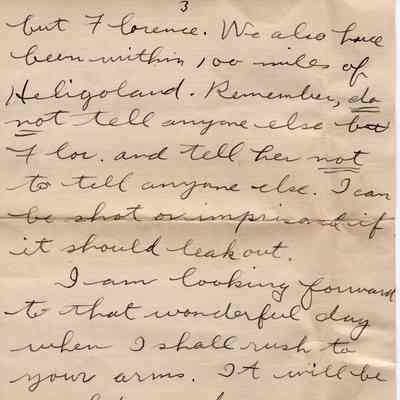 3
but Florence. We also have
been within 100 miles of
Heligoland. Remember, do
not tell anyone else but
Flor. and tell her not
to tell anyone else. I can
be shot or imprisoned if
it should leak out.
I am looking forward
to that wonderful day
when I shall rush to
your arms. It will be